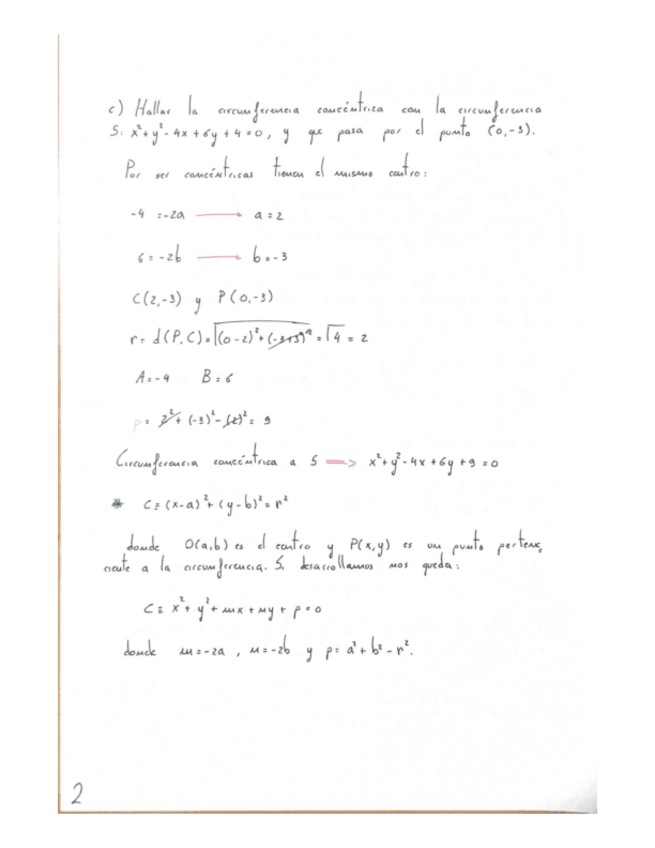 c) Hallar la circunferencia concéntrica con la circunferencia
S: x²+y²-4x+6y+4=0, y que pasa por el punto (0,-3).
Por ser concéntricas tienen el mismo centro:
-4 = -2a → a = 2
6 = -2b → b = -3
C(2,-3) y P(0,-3)
r = d(P,C) = √(0-2)²+(-3+3)² = √4 = 2
A = -4 B = 6
p = 2²+(-3)²-(2)² = 9
Circunferencia concéntrica a S ⇒ x²+y²-4x+6y+9=0
* C ≡ (x-a)²+(y-b)²=r²
donde O(a,b) es el centro y P(x,y) es un punto pertene
ciente a la circunferencia. Si desarrollamos nos queda:
C ≡ x²+y²+mx+ny+p=0
donde m=-2a, n=-2b y p=a²+b²-r².
2